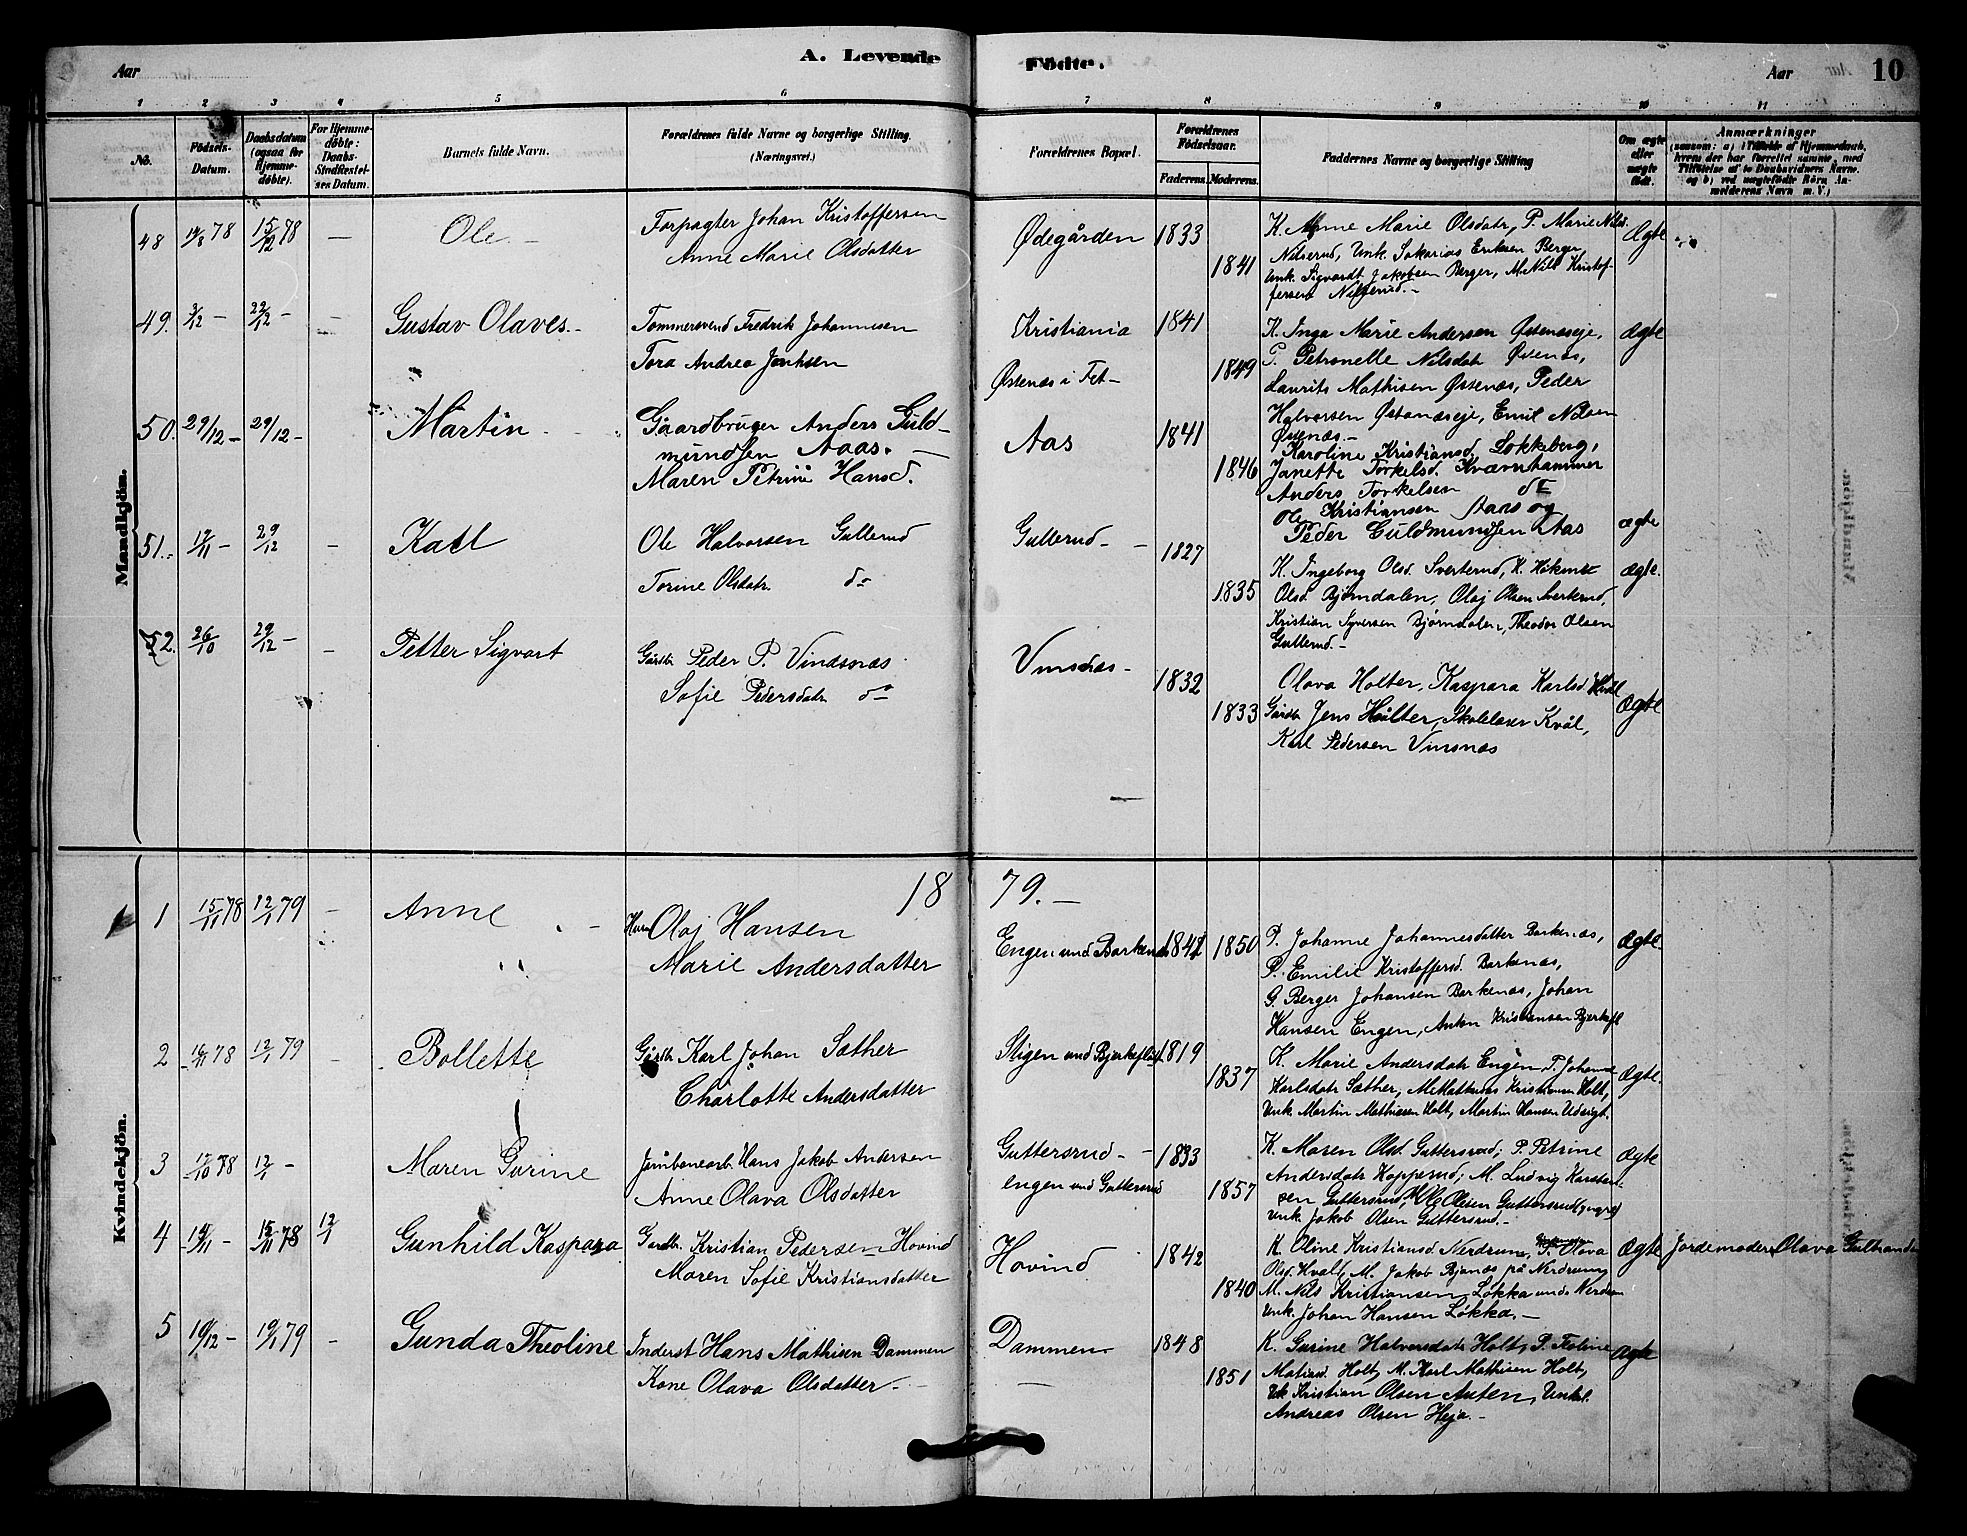 Aar
A. Levende
Fødte.
Aar
10
1 2 3 4 5 6 7 8 9 10 11
No.
Fødsels-Datum.
Daabsdatum (ogsaa for Hjemme-døbte).
For Hjemme-døbte: Daabs-Stadfæstel-ses Datum.
Barnets fulde Navn.
Forældrenes fulde Navne og borgerlige Stilling.
(Næringsvei.)
Forældrenes Bopæl.
Forældrenes Fødselsaar.
Faderens. Moderens.
Faddernes Navne og borgerlige Stilling
Om ægte eller uægte født.
Anmærkninger
(saasom: a) i Tilfælde af Hjemmedaab,
hvem der har forrettet samme, med
Tilføielse af to Daabsvidners Navne.
og b) ved uægtefødte Børn An-
melderens Navn m. V.)
Mandkjøn.
48 14/8 78 15/12 78 — Ole —
Forpagter Johan Kristoffersen
Anne Marie Olsdatter
Ødegården 1833
1841
K. Anne Marie Olsdatr, P. Marie Nilsd.
Nilserud, Unk. Sakarias Eriksen Berger,
Unk. Sigvardt Jakobsen Berger, M. Nils Kristof-
fersen Nilserud.—
Ægte
49. 3/12 — 22/12 — — Gustav Olaves.—
Tømmersvend Fredrik Johannesen
Tora Andrea Jenksen
Kristiania 1841
Østenæs i Fet— 1849
K. Inga Marie Andersen Østenæseje,
P. Petronelle Nilsdatr Østenæs,
Laurits Mathisen Østenæs, Peder
Halvorsen Østenæseje, Emil Nilsen
Østenæs.—
ægte
50. 29/12 — 29/12 — Martin —
Gaardbruger Anders Guld-
mundsen Aaas. —
Maren Petrine Hansd.
Aas 1841
1846
Karoline Kristiansd. Løkkeberg,
Janette Torkelsd. Kværnhammer
Anders Torkelsen do
Ole Kristiansen Aas og
Peder Guldmundsen Aas
ægte
51.— 17/11 — 29/12 — Karl
Ole Halvorsen Gullerud
Torine Olsdatr. do
Gullerud — 1827
1835
K. Ingeborg Olsd. Sverterud, K.
Olsd. Bjørndalen, Olaj Olsen Sverterud,
Kristian Syversen Bjørndalen, Theodor Olsen
Gullerud.—
ægte.
52. 26/10 29/12 — — Petter Sigvart
Gårdbr. Peder P. Vindsnæs
Sofie Pedersdatr do
Vinsnæs — 1832
1833
Olava Holter, Kaspara Karlsd
Gårdbr Jens Holter, Skolelærer Kvål,
Karl Pedersen Vinsnæs
Ægte
Kvindekjøn.
1879.—
1 15/11 78 12/1 79 — Anne —
Olaj Hansen
Marie Andersdatter
Engen und Barkenæs 1841 1850
P. Johanne Johannesdatter Barkenæs,
P. Emilie Kristoffersd. Barkenæs,
G. Berger Johansen Barkenæs, Johan
Hansen Engen, Anton Kristiansen Bjerkefl
Ægte
2 16/11 78 12/1 79 — Bollette
Gårdbr Karl Johan Sæther
Charlotte Andersdatter
Stigen und Bjerkeflåt 1819
1837
K. Marie Andersdatr Engen, P. Johanne
Karlsdatr Sæther, M. Mathias Kristiansen Holt,
Unk. Martin Mathiesen Holt, Martin Hansen Udsigt.
Ægte
3 12/10 78 12/1 — Maren Gurine
Jernbanearb. Hans Jakob Andersen
Anne Olava Olsdatter
Guttersrud — 1833
engen und Guttersrud 1857
K. Maren Olsd. Guttersrud, P. Petrine
Andersdatr Kopperud; M. Ludvig Karsten-
sen Guttersrud, Ole Olsen Guttersrud (yngre)
Unk. Jakob Olsen Guttersrud.—
Ægte
4 14/11 — 15/11 78 12/1 Gunhild Kaspara
Gårdbr. Kristian Pedersen Hovind
Maren Sofie Kristiansdatter
Hovind 1842
1840
K. Oline Kristiansd Nerdrum, P. Olava
Olsd. Hvalt, M. Jakob Bjanæs på Nerdrum,
M. Nils Kristiansen Løkka unde Nerdrum
Unk. Johan Hansen Løkka.—
Ægte
Jordemoder Olava Gulbrands
5 10/12 — 19/1 79 — Gunda Theoline
Inderst Hans Mathisen Dammen
Kone Olava Olsdatter.—
Dammen 1848
— 1851
K. Gurine Halvorsdatr Holt, P. Teoline
Matiasd. Holt, M. Karl Mathisen Holt,
Unk Kristian Olsen Anten, Unkl.
Andreas Olsen Heja.—
Ægte